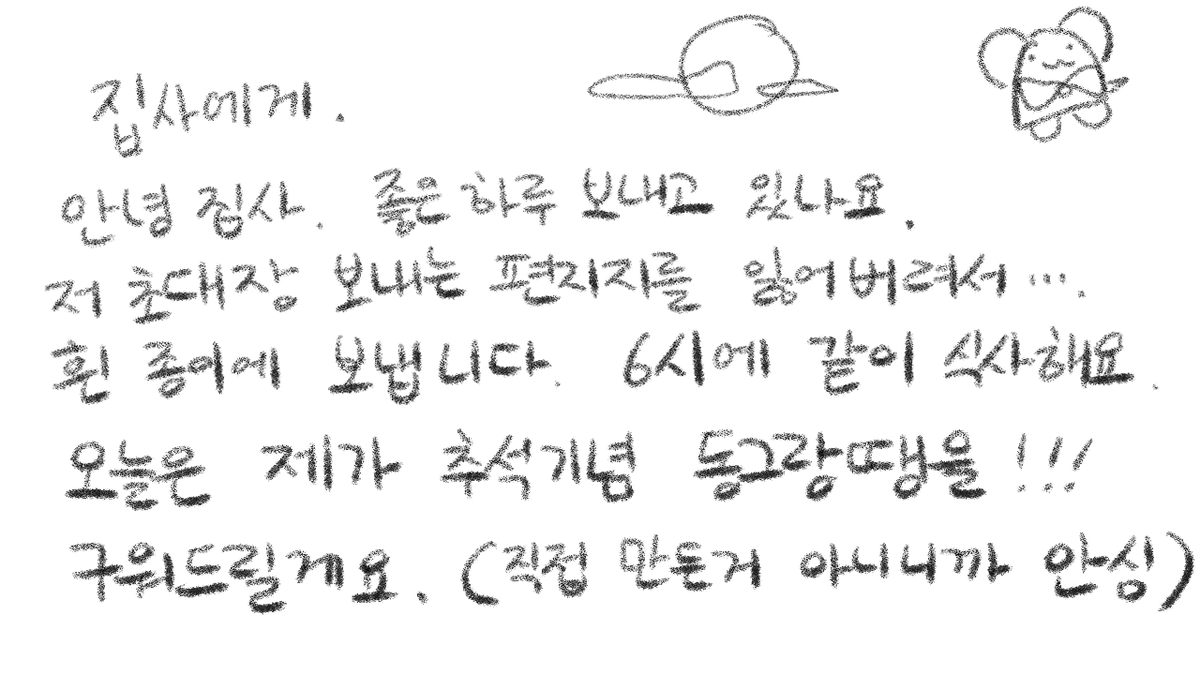 집사에게.
안녕 집사. 좋은 하루 보내고 있나요.
저 초대장 보내는 편지지를 잃어버려서...
흰 종이에 보냅니다. 6시에 같이 식사해요.
오늘은 제가 추석기념 동그랑땡을!!!
구워드릴게요. (직접 만든거 아니니까 안심)